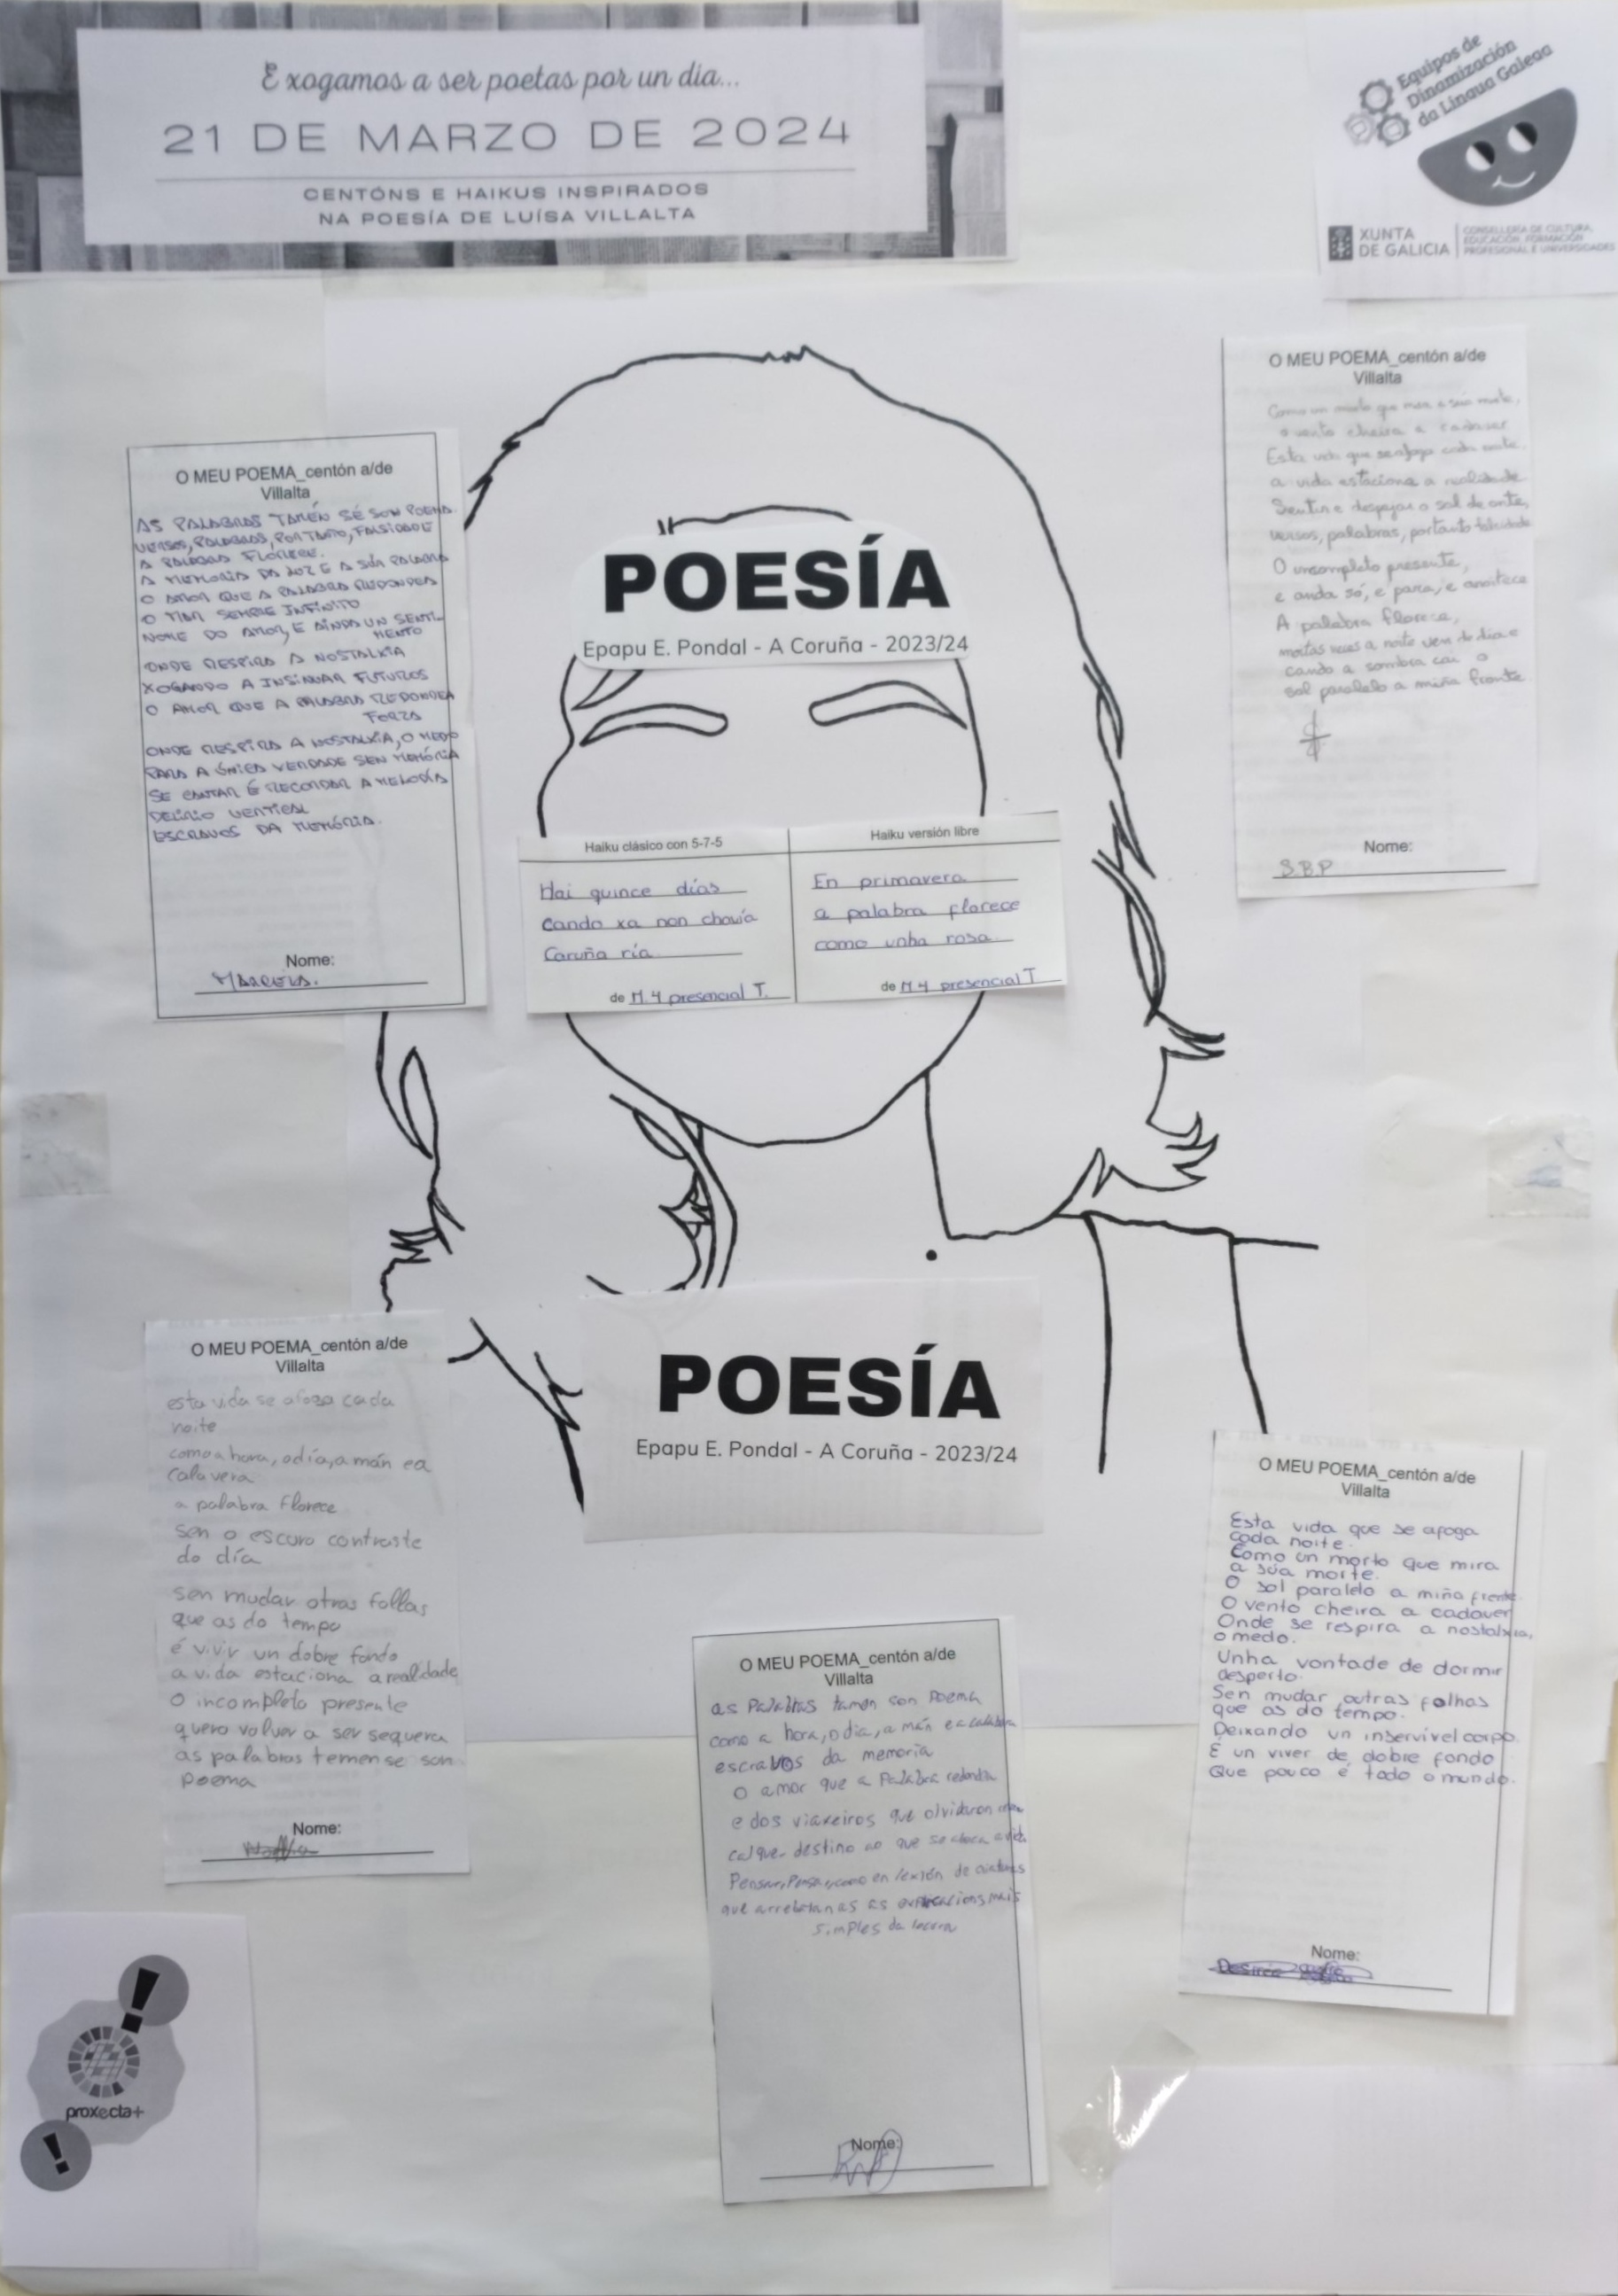 E xogamos a ser poetas por un dia...
21 DE MARZO DE 2024
CENTÓNS E HAIKUS INSPIRADOS
NA POESÍA DE LUÍSA VILLALTA
Equipos de
Dinamización
da Lingua Galega
XUNTA
DE GALICIA
CONSELLERÍA DE CULTURA,
EDUCACIÓN, FORMACIÓN
PROFESIONAL E UNIVERSIDADES
O MEU POEMA_centón a/de
Villalta
AS PALABRAS TAMÉN SÉ SON POEMA
VERSOS, PALABRAS, POR TANTO, FALSIDADE
A PALABRA FLORECE.
A MEMORIA DA LUZ E A SÚA PALABRA
O AMOR QUE A PALABRA REDONDEA
O MAR SEMPRE INFINITO
NOME DO AMOR, E AÍNDA UN SENTI-
MENTO
ONDE RESPIRA A NOSTALXIA
XOGANDO A INSINUAR FUTUROS
O AMOR QUE A PALABRA REDONDEA
FORZA
ONDE RESPIRA A NOSTALXIA, O MEDO
PARA A ÚNICA VERDADE SEN MEMÓRIA
SE CANTAR É RECORDAR A MELODÍA
DELIRIO VERTICAL
ESCRAVOS DA MEMÓRIA.
Nome:
O MEU POEMA_centón a/de
Villalta
Como un morto que mira a súa morte,
o vento cheira a cadaver
Esta vida que se afoga cada noite.
a vida estaciona a realidade
Sentir e despejar o sol de onte,
versos, palabras, portanto falsidade
O incompleto presente,
e anda só, e para, e anoitece
A palabra florece,
moitas veces a noite ven de dia e
cando a sombra cai o
sol paralelo a miña fronte
Nome:
S.B.P
POESÍA
Epapu E. Pondal - A Coruña - 2023/24
Haiku clásico con 5-7-5
Hai quince días
cando xa non chovía
Coruña ría
de M.4 presencial T.
Haiku versión libre
En primavera
a palabra florece
como unha rosa
de M 4 presencial T
POESÍA
Epapu E. Pondal - A Coruña - 2023/24
O MEU POEMA_centón a/de
Villalta
esta vida se afoga cada
noite
como a hora, o día, a mán e a
calavera
a palabra florece
sen o escuro contraste
do día
sen mudar otras follas
que as do tempo
é vivir un dobre fondo
a vida estaciona a realidade
O incompleto presente
quero volver a ser sequera
as palabras temense son
poema
Nome:
O MEU POEMA_centón a/de
Villalta
as Palabras tamen son Poema
como a hora, o dia, a mán e a calabera
escravos da memoria
O amor que a Palabra redondea
e dos viaxeiros que olvidaron
calquer destino ao que se aboca a vida
Pensar, Pensar, como en lexión de
que arrebatan as as explicacions mais
simples da locura
Nome:
O MEU POEMA_centón a/de
Villalta
Esta vida que se afoga
cada noite.
Como un morto que mira
a súa morte.
O sol paralelo a miña frente.
O vento cheira a cadaver
Onde se respira a nostalxia,
o medo.
Unha vontade de dormir
desperto.
Sen mudar outras folhas
que as do tempo.
Deixando un inservível corpo.
É un viver de dobre fondo
Que pouco é todo o mundo.
Nome:
Desirée
proxecta+